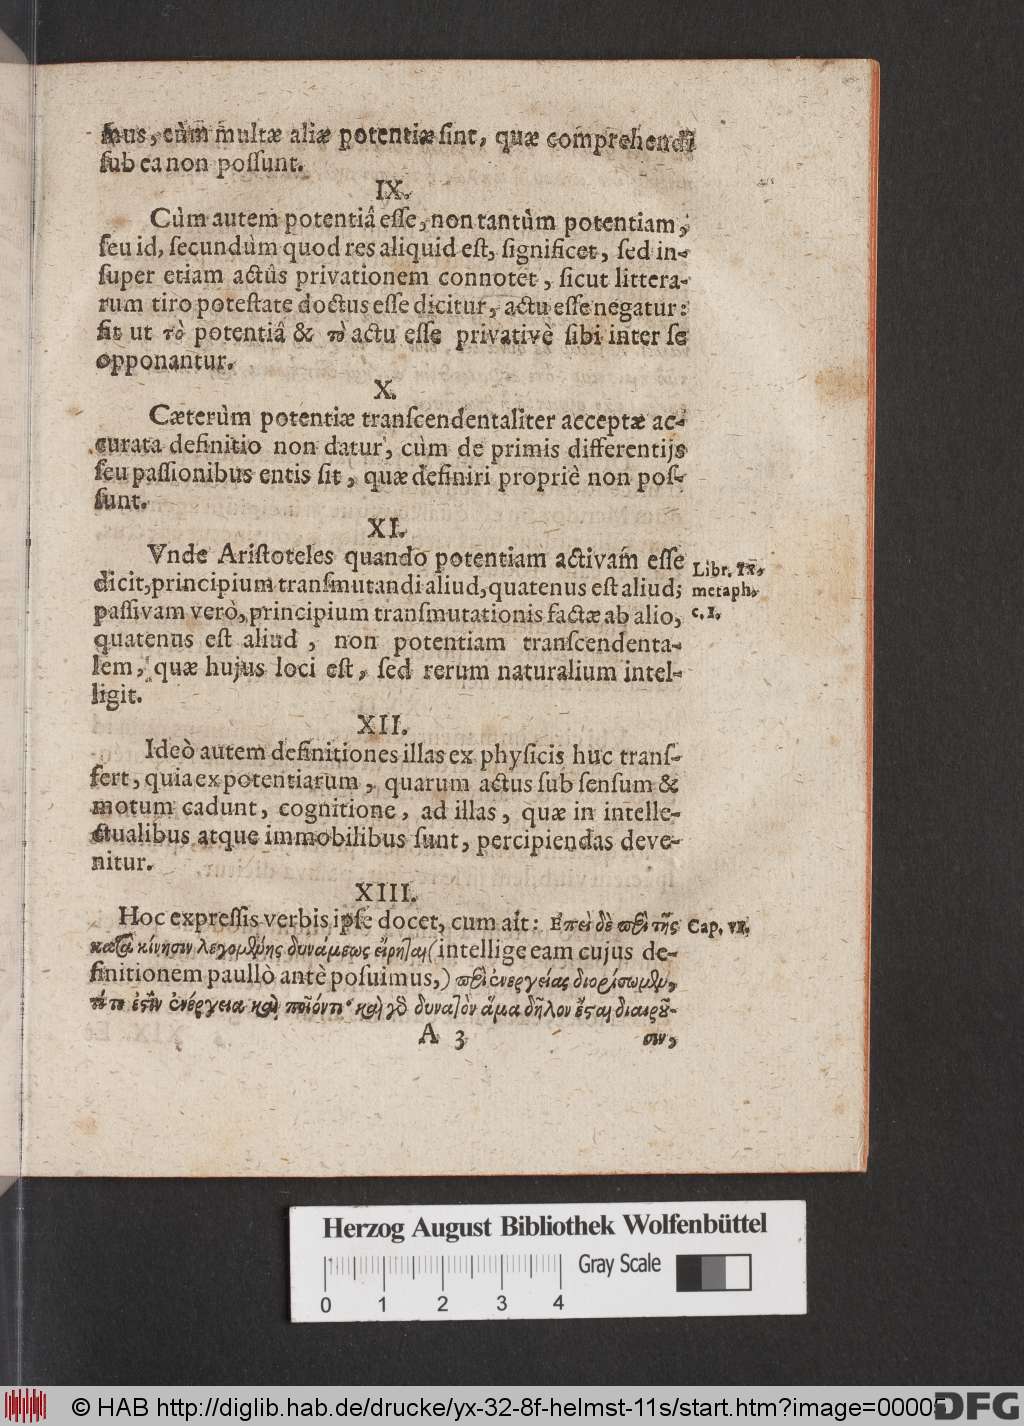 mus, cùm multæ aliæ potentiæ ſint, quæ comprehendi
ſub ea non poſſunt.
IX.
Cùm autem potentiâ eſſe, non tantùm potentiam,
ſeu id, ſecundùm quod res aliquid eſt, ſignificet, ſed in-
ſuper etiam actûs privationem connotet, ſicut littera-
rum tiro poteſtate doctus eſſe dicitur, actu eſſe negatur:
fit ut τὸ potentiâ & τὸ actu eſſe privativè ſibi inter ſe
opponantur.
X.
Cæterùm potentiæ tranſcendentaliter acceptæ ac-
curata definitio non datur, cùm de primis differentijs
ſeu paſſionibus entis ſit, quæ definiri propriè non poſ-
ſunt.
XI.
Vnde Ariſtoteles quando potentiam activam eſſe
dicit, principium tranſmutandi aliud, quatenus eſt aliud;
paſſivam verò, principium tranſmutationis factæ ab alio,
quatenus eſt aliud, non potentiam tranſcendenta-
lem, quæ hujus loci eſt, ſed rerum naturalium intel-
ligit.
Libr. IX.
metaph.
c. I.
XII.
Ideò autem definitiones illas ex phyſicis huc tranſ-
fert, quia ex potentiarum, quarum actus ſub ſenſum &
motum cadunt, cognitione, ad illas, quæ in intelle-
ctualibus atque immobilibus ſunt, percipiendas deve-
nitur.
XIII.
Hoc expreſſis verbis ipſe docet, cum ait: Ἐπεὶ δὲ περὶ τῆς
κατὰ κίνησιν λεγομένης δυνάμεως εἴρηται (intellige eam cujus de-
finitionem paullò antè poſuimus,) περὶ ἐνεργείας διορίσωμεν,
τί τε ἐστὶν ἐνέργεια καὶ ποῖόν τι· καὶ γὸ δυνατὸν ἅμα δῆλον ἔσται διαιροῦ-
Cap. VI.
A 3
σιν,
Herzog August Bibliothek Wolfenbüttel
Gray Scale
0 1 2 3 4
© HAB http://diglib.hab.de/drucke/yx-32-8f-helmst-11s/start.htm?image=00005
DFG